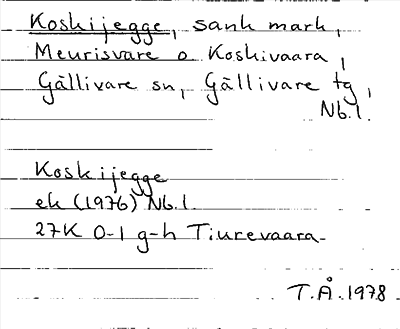 Koskijegge, sank mark,
Meurisvare o Koskivaara,
Gällivare sn, Gällivare tg,
Nb.l.
Koskijegge
ek (1976) Nb.l.
27K 0-1 g-h Tiurevaara
T.Å. 1978